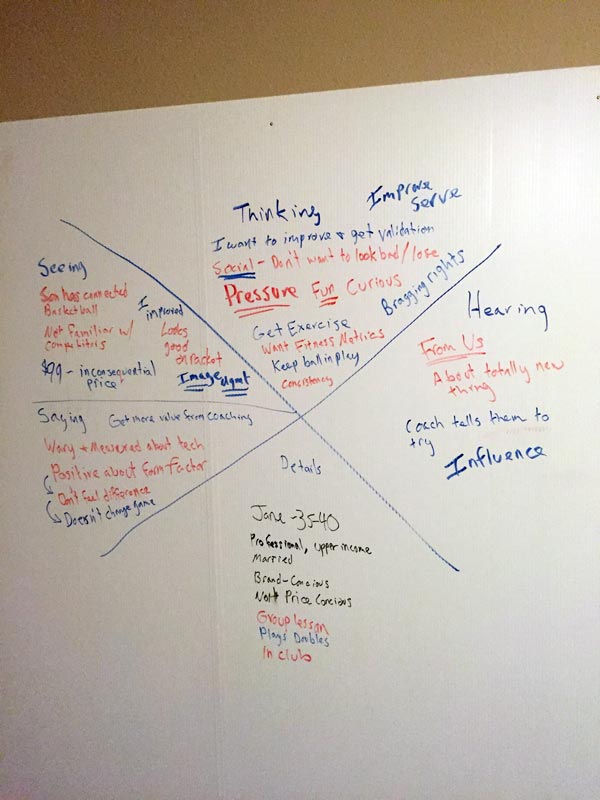 Thinking
Improve
Serve
I want to improve & get validation
Social - Don't want to look bad / lose
Pressure Fun Curious
Bragging rights
Get Exercise
Want Fitness Metrics
Keep ball in play
Consistency
Seeing
Son has connected
Basketball
Not Familiar w/
Competitors
$99 - inconsequential
price
I
improved
Looks
good
on racket
Image Mgmt
Hearing
From Us
About totally new
thing
Coach tells them to
try
Influence
Saying
Get more value from coaching
Wary + Measured about tech
Positive about form factor
Don't feel difference
Doesn't change game
Details
Jane - 35-40
Professional, upper income
Married
Brand-Concious
Not Price Concious
Group lesson
Plays Doubles
In club